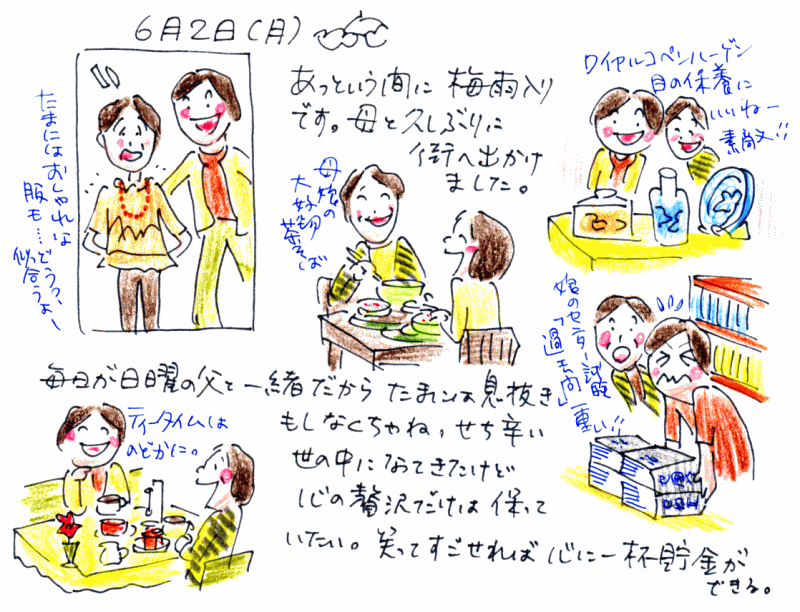 6月2日(月)
たまにはおしゃれな
服も…どう?、
似合うよー
あっという間に 梅雨入り
です。母と久しぶりに
街へ出かけ
ました。
母娘の
大好物
茶そば
ロイヤルコペンハーゲン
目の保養に
いいねー
素敵!!
娘のセンター試験
「過去問」重い!!
毎日が日曜の父と一緒だから たまには息抜き
もしなくちゃね。せち辛い
世の中になってきたけど
心の贅沢だけは 保って
いたい。笑ってすごせれば 心に一杯貯金が
できる。
ティータイムは
のどかに。